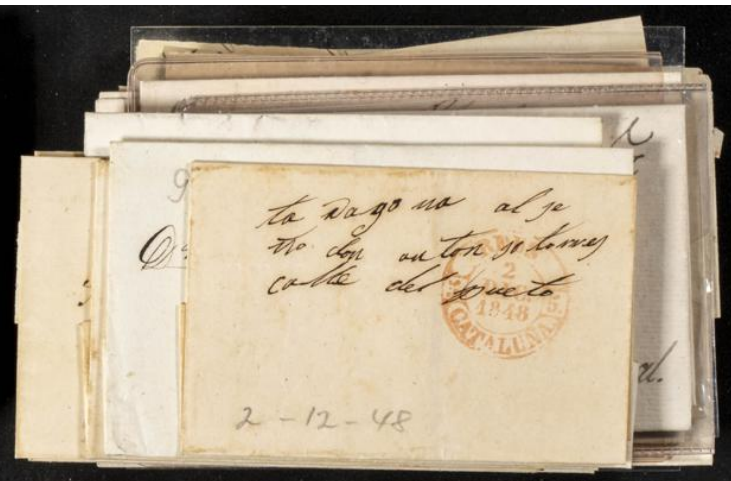 ta Rago na al se
ño don anton so torres
calle del pueto
2
1848
CATALUÑA
2 - 12 - 48